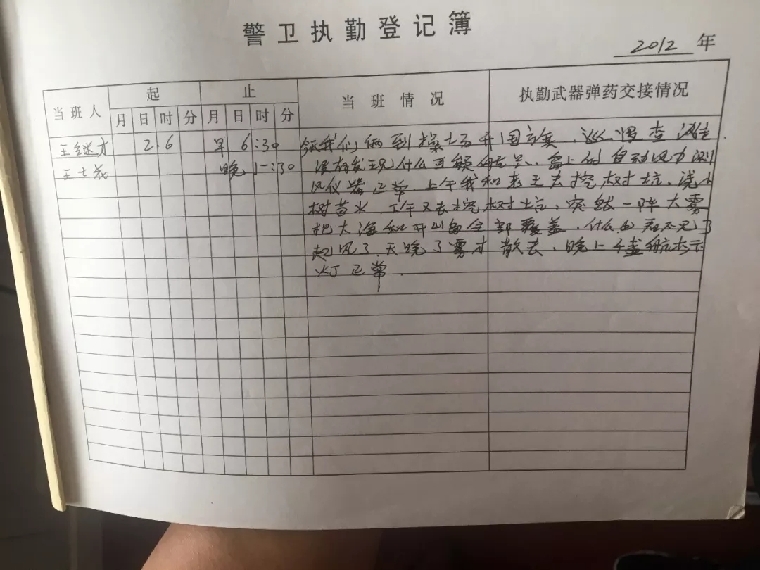 警卫执勤登记簿
2012 年
当班人 起 止 当班情况 执勤武器弹药交接情况
月 日 时 分 月 日 时 分
王继才 2 6 早 6:30 我们俩到操场升国旗, 巡逻查
王士花 晚 :30 没有发现什么可疑 岛上的自动风力测
风仪器正常 上午我和老王去挖树坑, 浇水
树苗 下午又去挖树坑, 突然一阵大雾
把大海和开山岛全部覆盖, 什么也看不见了
天晚了雾才散去, 晚上 航标
灯正常.